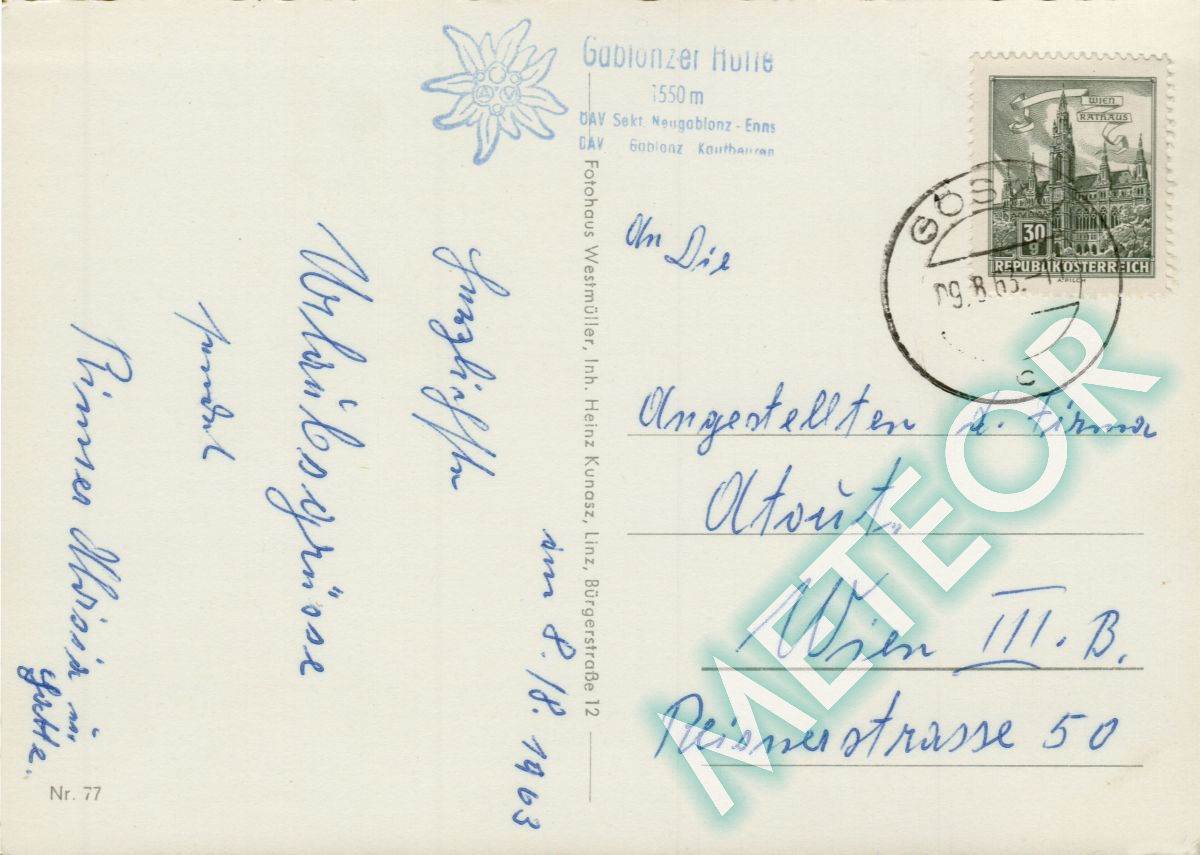 Gablonzer Hütte
1550 m
ÖAV Sekt. Neugablonz - Enns
DAV Gablonz Kaufbeuren
WIEN
RATHAUS
30 g
REPUBLIK ÖSTERREICH
A. PILCH
GÖS
09.8.63.
c
im 8./8. 1963
Herzlichste
Urlaubsgrüsse
sendet
Rinner Maria u.
Gatte.
Nr. 77
Fotohaus Westmüller, Inh. Heinz Kunasz, Linz, Bürgerstraße 12
An Die
Angestellten d. Firma
Atout.
Wien III. B.
Reisnerstrasse 50
METEOR